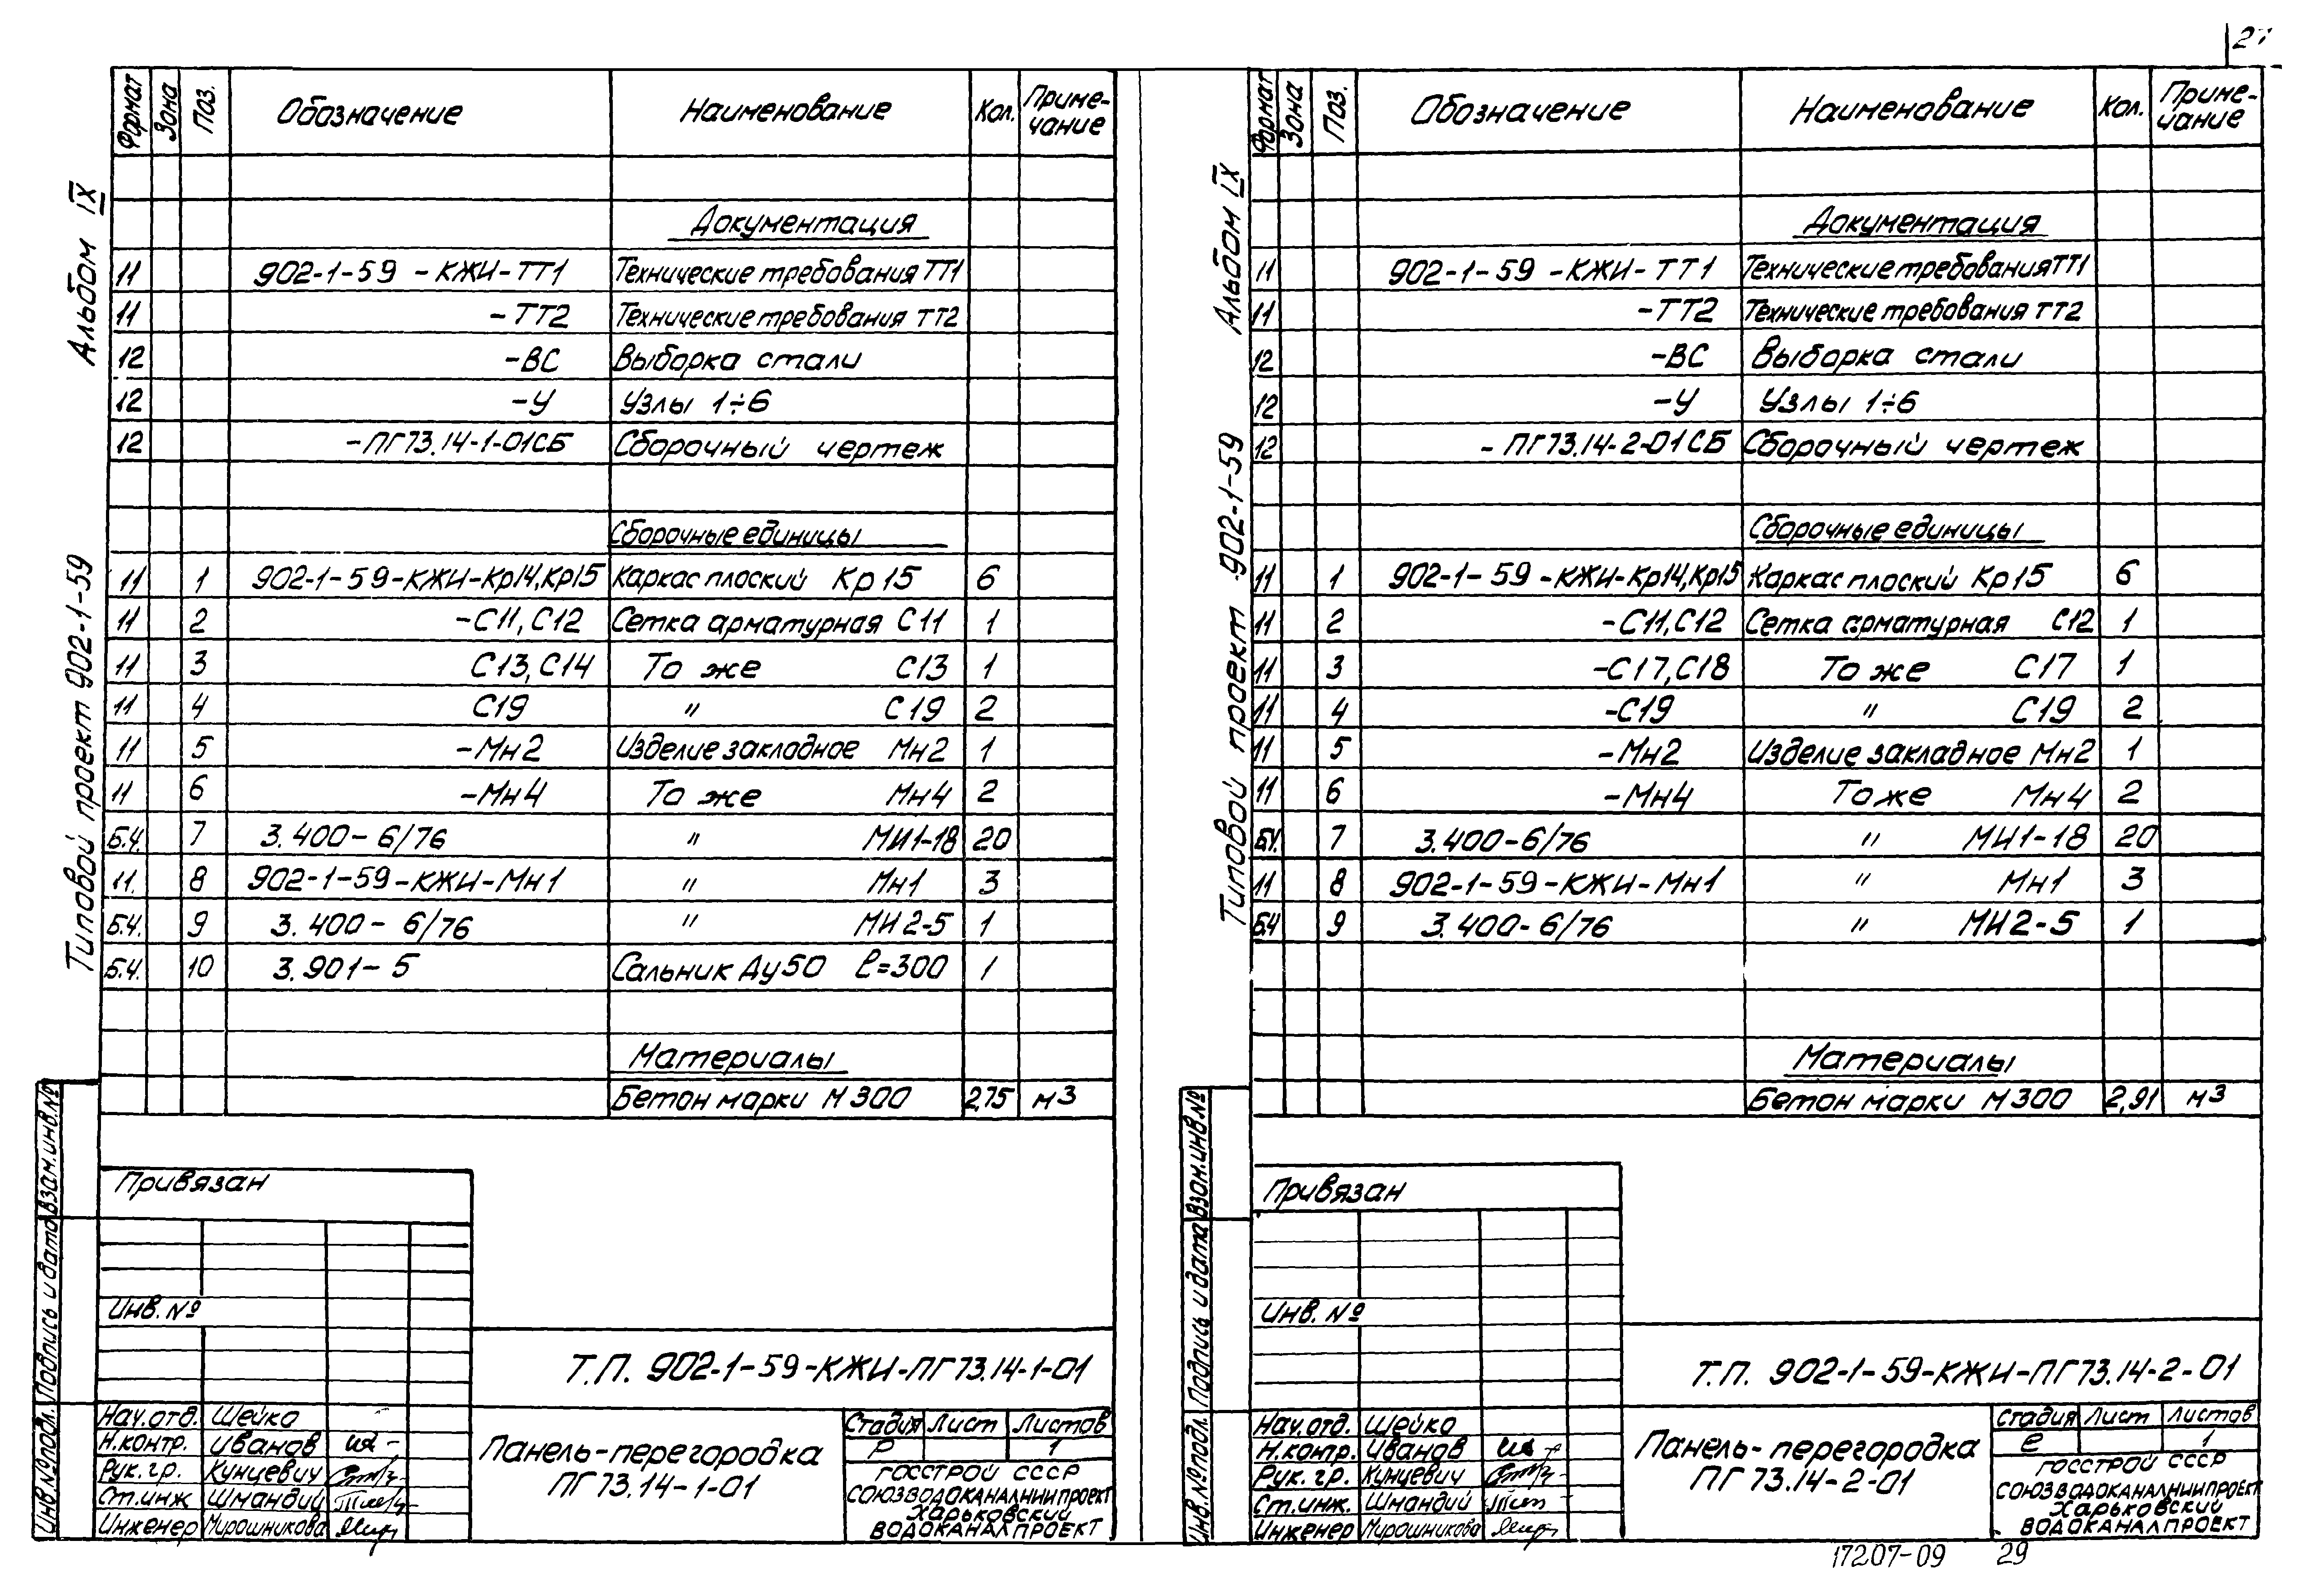 27
Альбом IX
Типовой проект 902-1-59
Формат Зона Поз. Обозначение Наименование Кол. Приме-чание
Документация
11 902-1-59-КЖИ-ТТ1 Технические требования ТТ1
11 -ТТ2 Технические требования ТТ2
12 -ВС Выборка стали
12 -У Узлы 1÷6
12 -ПГ73.14-1-01СБ Сборочный чертеж
Сборочные единицы
11 1 902-1-59-КЖИ-Кр14,Кр15 Каркас плоский Кр15 6
11 2 -С11,С12 Сетка арматурная С11 1
11 3 С13,С14 То же С13 1
11 4 С19 " С19 2
11 5 -Мн2 Изделие закладное Мн2 1
11 6 -Мн4 То же Мн4 2
Б.Ч. 7 3.400-6/76 " МИ1-18 20
11. 8 902-1-59-КЖИ-Мн1 " Мн1 3
Б.Ч. 9 3.400-6/76 " МИ2-5 1
Б.Ч. 10 3.901-5 Сальник Ду50 ℓ=300 1
Материалы
Бетон марки М300 2,75 м3
Взам.инв.№
Подпись и дата
Инв.№подл.
Привязан
Инв.№
Т.П. 902-1-59-КЖИ-ПГ73.14-1-01
Нач.отд. Шейко
Н.контр. Иванов
Рук.гр. Кунцевич
Ст.инж Шмандий
Инженер Мирошникова
Панель-перегородка
ПГ73.14-1-01
Стадия Лист Листов
Р 1
ГОССТРОЙ СССР
СОЮЗВОДОКАНАЛНИИПРОЕКТ
Харьковский
ВОДОКАНАЛПРОЕКТ
Альбом IX
Типовой проект 902-1-59
Формат Зона Поз. Обозначение Наименование Кол. Приме-чание
Документация
11 902-1-59-КЖИ-ТТ1 Технические требования ТТ1
11 -ТТ2 Технические требования ТТ2
12 -ВС Выборка стали
12 -У Узлы 1÷6
12 -ПГ73.14-2-01СБ Сборочный чертеж
Сборочные единицы
11 1 902-1-59-КЖИ-Кр14,Кр15 Каркас плоский Кр15 6
11 2 -С11,С12 Сетка арматурная С12 1
11 3 -С17,С18 То же С17 1
11 4 -С19 " С19 2
11 5 -Мн2 Изделие закладное Мн2 1
11 6 -Мн4 То же Мн4 2
Б.Ч. 7 3.400-6/76 " МИ1-18 20
11 8 902-1-59-КЖИ-Мн1 " Мн1 3
Б.Ч 9 3.400-6/76 " МИ2-5 1
Материалы
Бетон марки М300 2,91 м3
Взам.инв.№
Подпись и дата
Инв.№подл.
Привязан
Инв.№
Т.П. 902-1-59-КЖИ-ПГ73.14-2-01
Нач.отд. Шейко
Н.контр. Иванов
Рук.гр. Кунцевич
Ст.инж. Шмандий
Инженер Мирошникова
Панель-перегородка
ПГ73.14-2-01
Стадия Лист Листов
е 1
ГОССТРОЙ СССР
СОЮЗВОДОКАНАЛНИИПРОЕКТ
Харьковский
ВОДОКАНАЛПРОЕКТ
17207-09 29